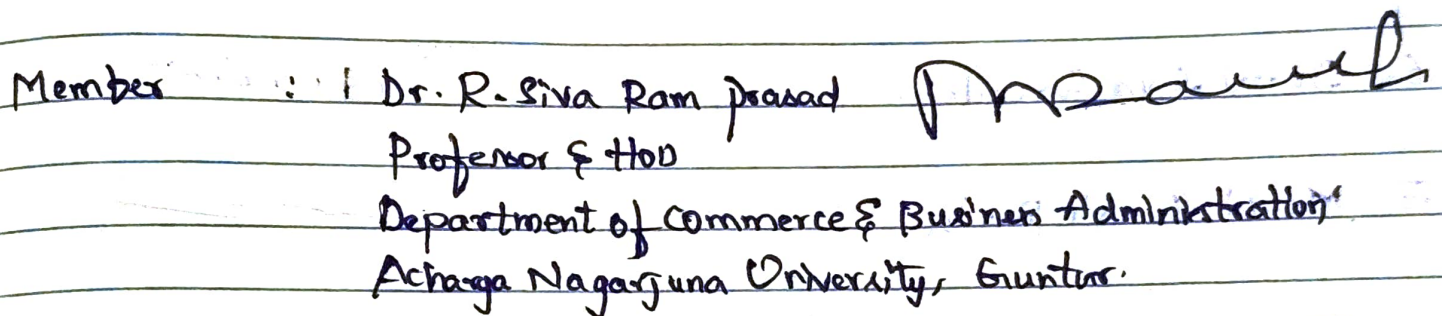 Member : Dr. R. Siva Ram Prasad
Professor & HOD
Department of Commerce & Business Administration
Acharya Nagarjuna University, Guntur.